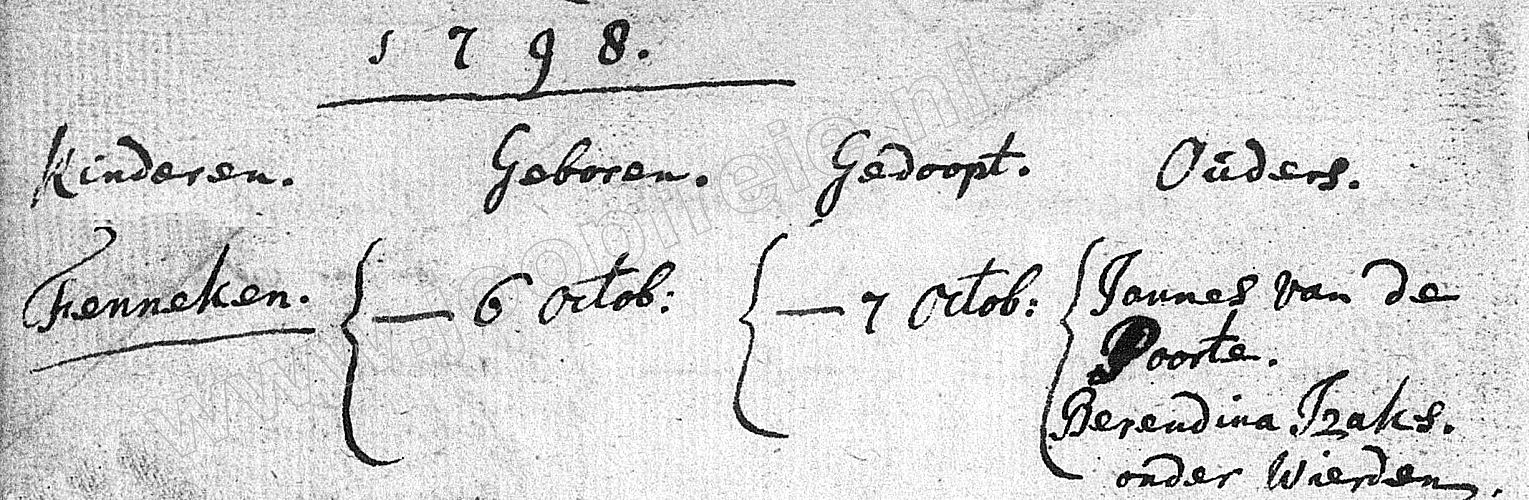 1798.
Kinderen. Geboren. Gedoopt. Ouders.
Fenneken. — 6 octob: — 7 Octob: Jannes van de
Poorte.
Berendina Izaks.
onder Wierden,